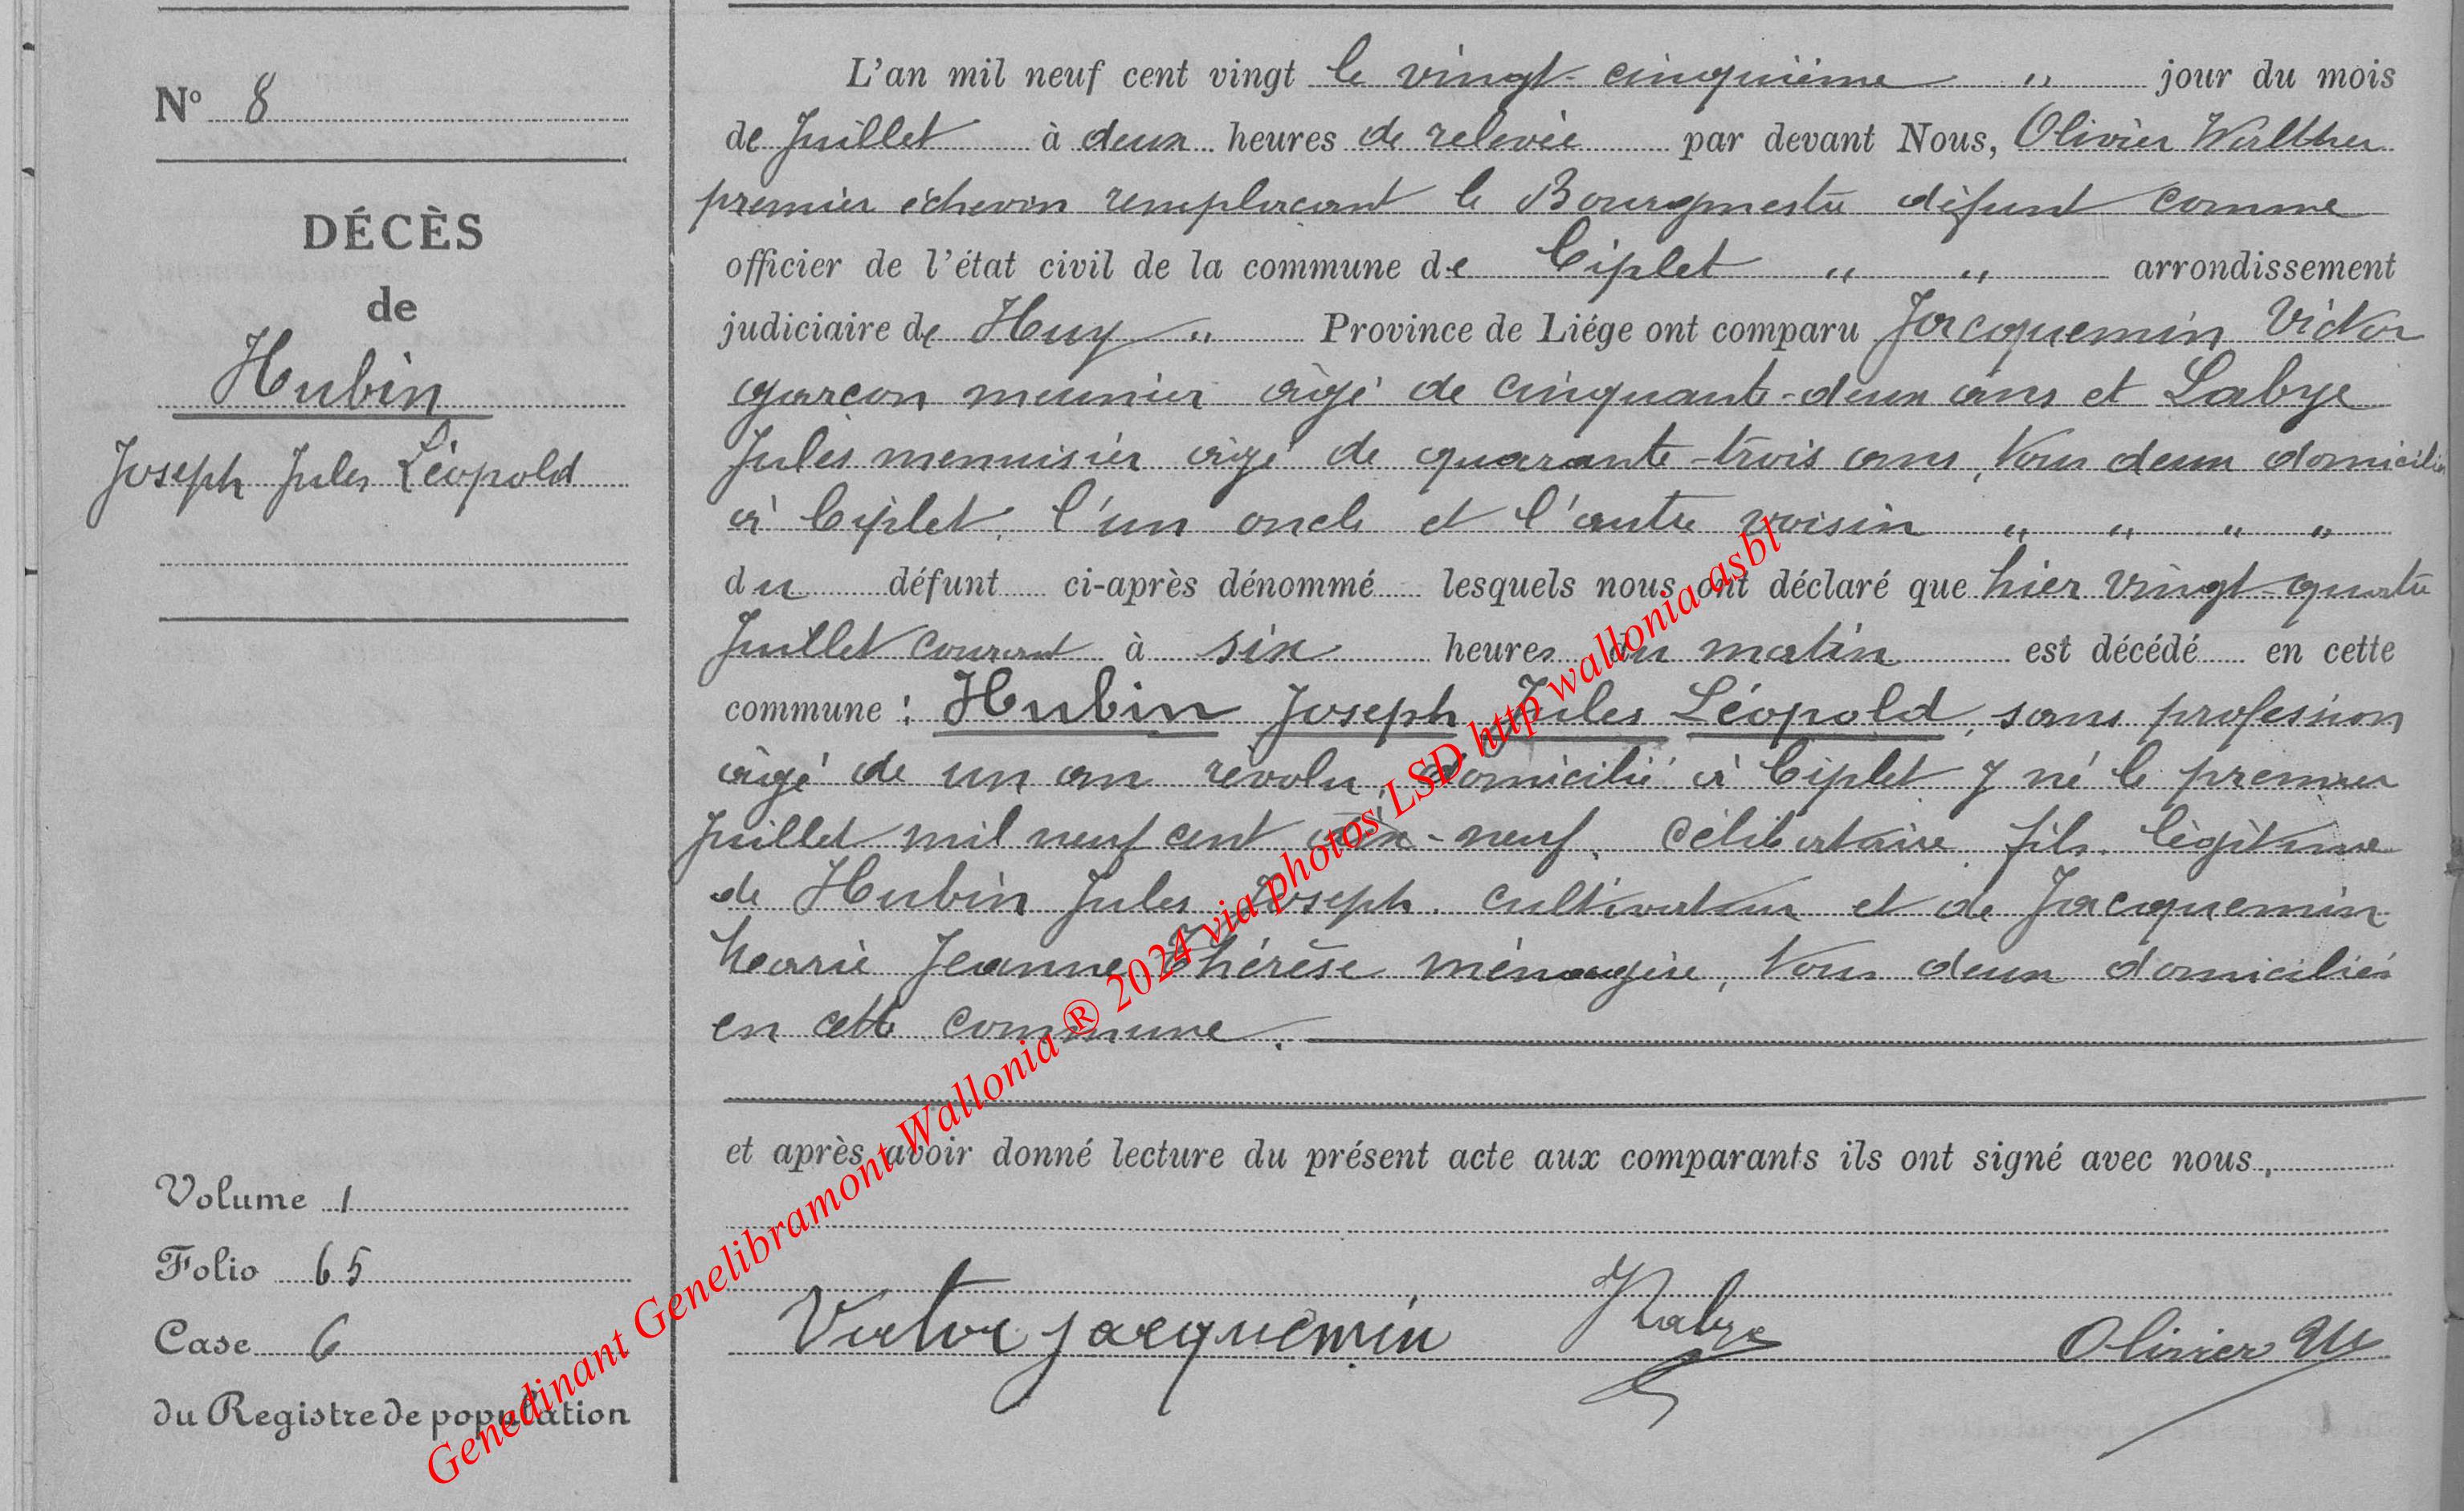 N° 8
DÉCÈS
de
Hubin
Joseph Jules Léopold
Volume 1
Folio 65
Case 6
du Registre de population
L'an mil neuf cent vingt le vingt-cinquième " jour du mois
de Juillet à deux heures de relevée par devant Nous, Olivier Walther
premier échevin remplacant le Bourgmestre défunt comme
officier de l'état civil de la commune de Ciplet " " arrondissement
judiciaire de Huy " Province de Liége ont comparu Jacquemin Victor
garcon meunier âgé de cinquante-deux ans et Labye
Jules menuisier âgé de quarante-trois ans, tous deux domiciliés
à Ciplet, l'un oncle et l'autre voisin " " " "
du défunt ci-après dénommé lesquels nous ont déclaré que hier vingt-quatre
Juillet courant à six heures du matin est décédé en cette
commune : Hubin Joseph Jules Léopold, sans profession
âgé de un an révolu, domicilié à Ciplet y né le premier
Juillet mil neuf cent dix-neuf, célibataire, fils légitime
de Hubin Jules Joseph, cultivateur et de Jacquemin
Marie Jeanne Thérèse ménagère, tous deux domiciliés
en cette commune.
et après avoir donné lecture du présent acte aux comparants ils ont signé avec nous,
Victor Jacquemin Labye Olivier W
Genedinant Genelibramont Wallonia® 2024 via photos LSD http wallonia asbl